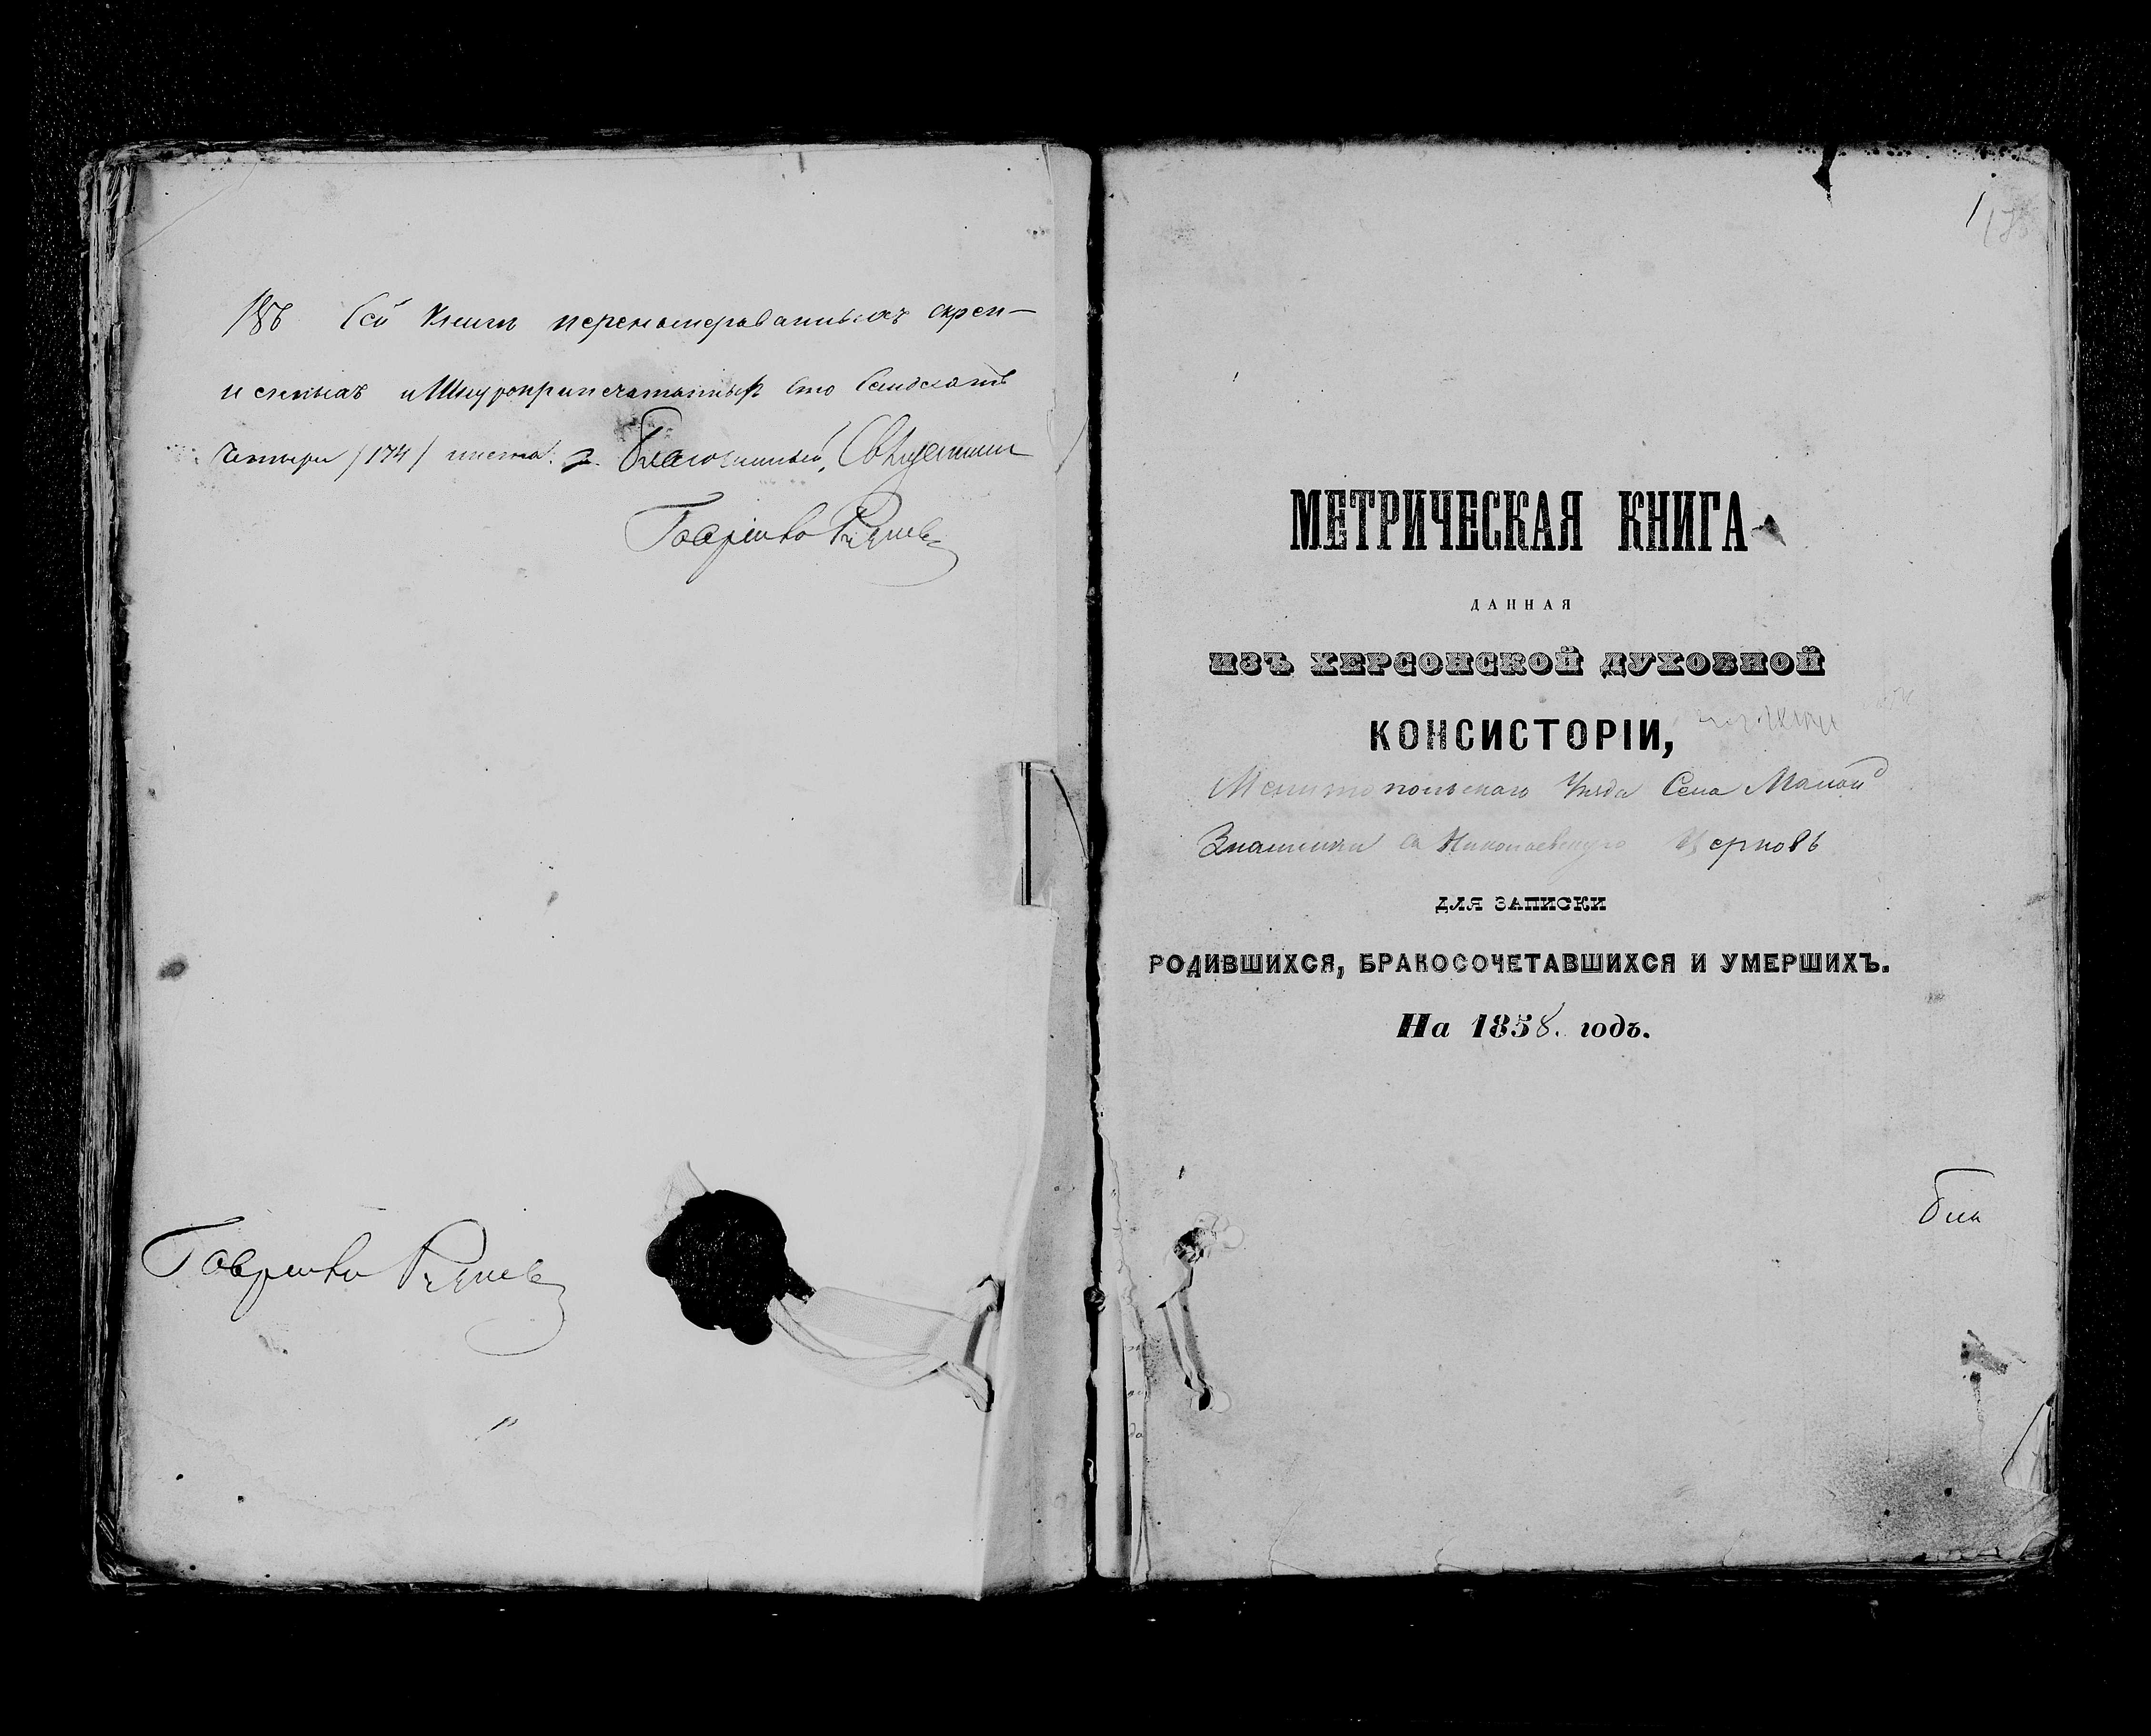 Сей Книги перенумерованныхъ скреп-
ленныхъ и Шнуроприпечатанныхъ Сто Семдесятъ
Четыри /174/ листа. Благочинный, Священникъ
Гавріилъ
Гавріилъ
1
МЕТРИЧЕСКАЯ КНИГА
ДАННАЯ
ИЗЪ ХЕРСОНСКОЙ ДУХОВНОЙ
КОНСИСТОРІИ,
Мелитопольскаго Уезда Села Малой
Знаменки въ Николаевскую Церковь
ДЛЯ ЗАПИСКИ
РОДИВШИХСЯ, БРАКОСОЧЕТАВШИХСЯ И УМЕРШИХЪ.
На 1858. годъ.